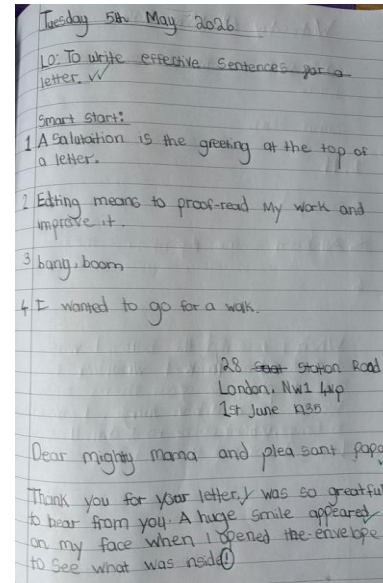 Tuesday 5th May 2026
LO: To write effective sentences for a
letter.
Smart start:
1 A Salutaition is the greeting at the top of
a letter.
2 Editing means to proof-read My work and
improve it.
3 bang, boom
4 I wanted to go for a walk.
28 Station Road
London, NW1 4NP
1st June 1935
Dear mighty mama and pleasant papa
Thank you for your letter, I was so greatful
to hear from you. A huge smile appeared
on my face when I opened the envelope
to see what was inside!